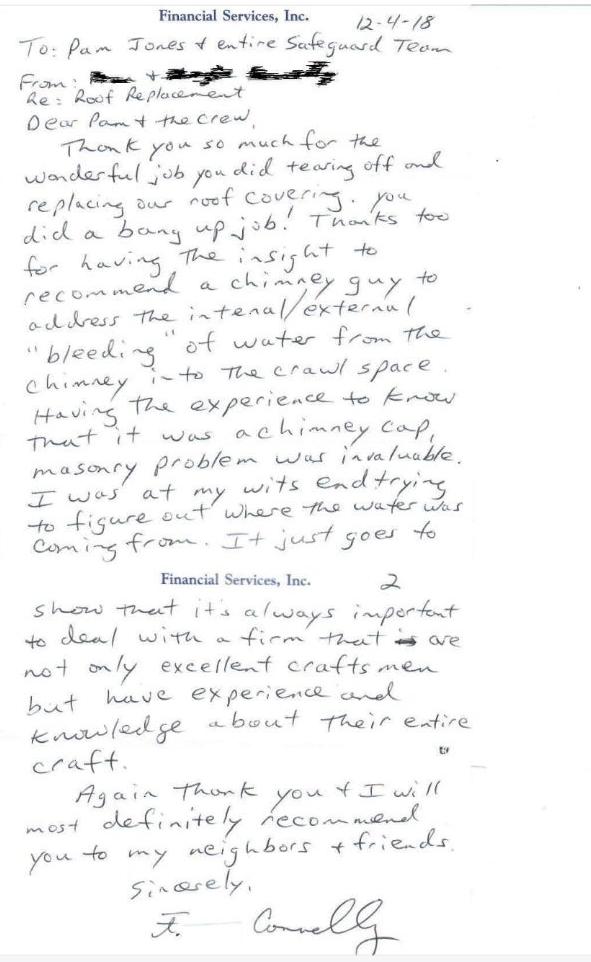 Financial Services, Inc.
12-4-18
To: Pam Jones & entire Safeguard Team
From: &
Re: Roof Replacement
Dear Pam & the crew,
Thank you so much for the
wonderful job you did tearing off and
replacing our roof covering. you
did a bang up job! Thanks too
for having the insight to
recommend a chimney guy to
address the intenal/external
"bleeding" of water from the
chimney into the crawl space.
Having the experience to know
that it was a chimney cap,
masonry problem was invaluable.
I was at my wits end trying
to figure out where the water was
coming from. It just goes to
Financial Services, Inc.
2
show that it's always important
to deal with a firm that is are
not only excellent craftsmen
but have experience and
knowledge about their entire
craft.
Again thank you & I will
most definitely recommend
you to my neighbors & friends.
Sincerely,
F. Connelly